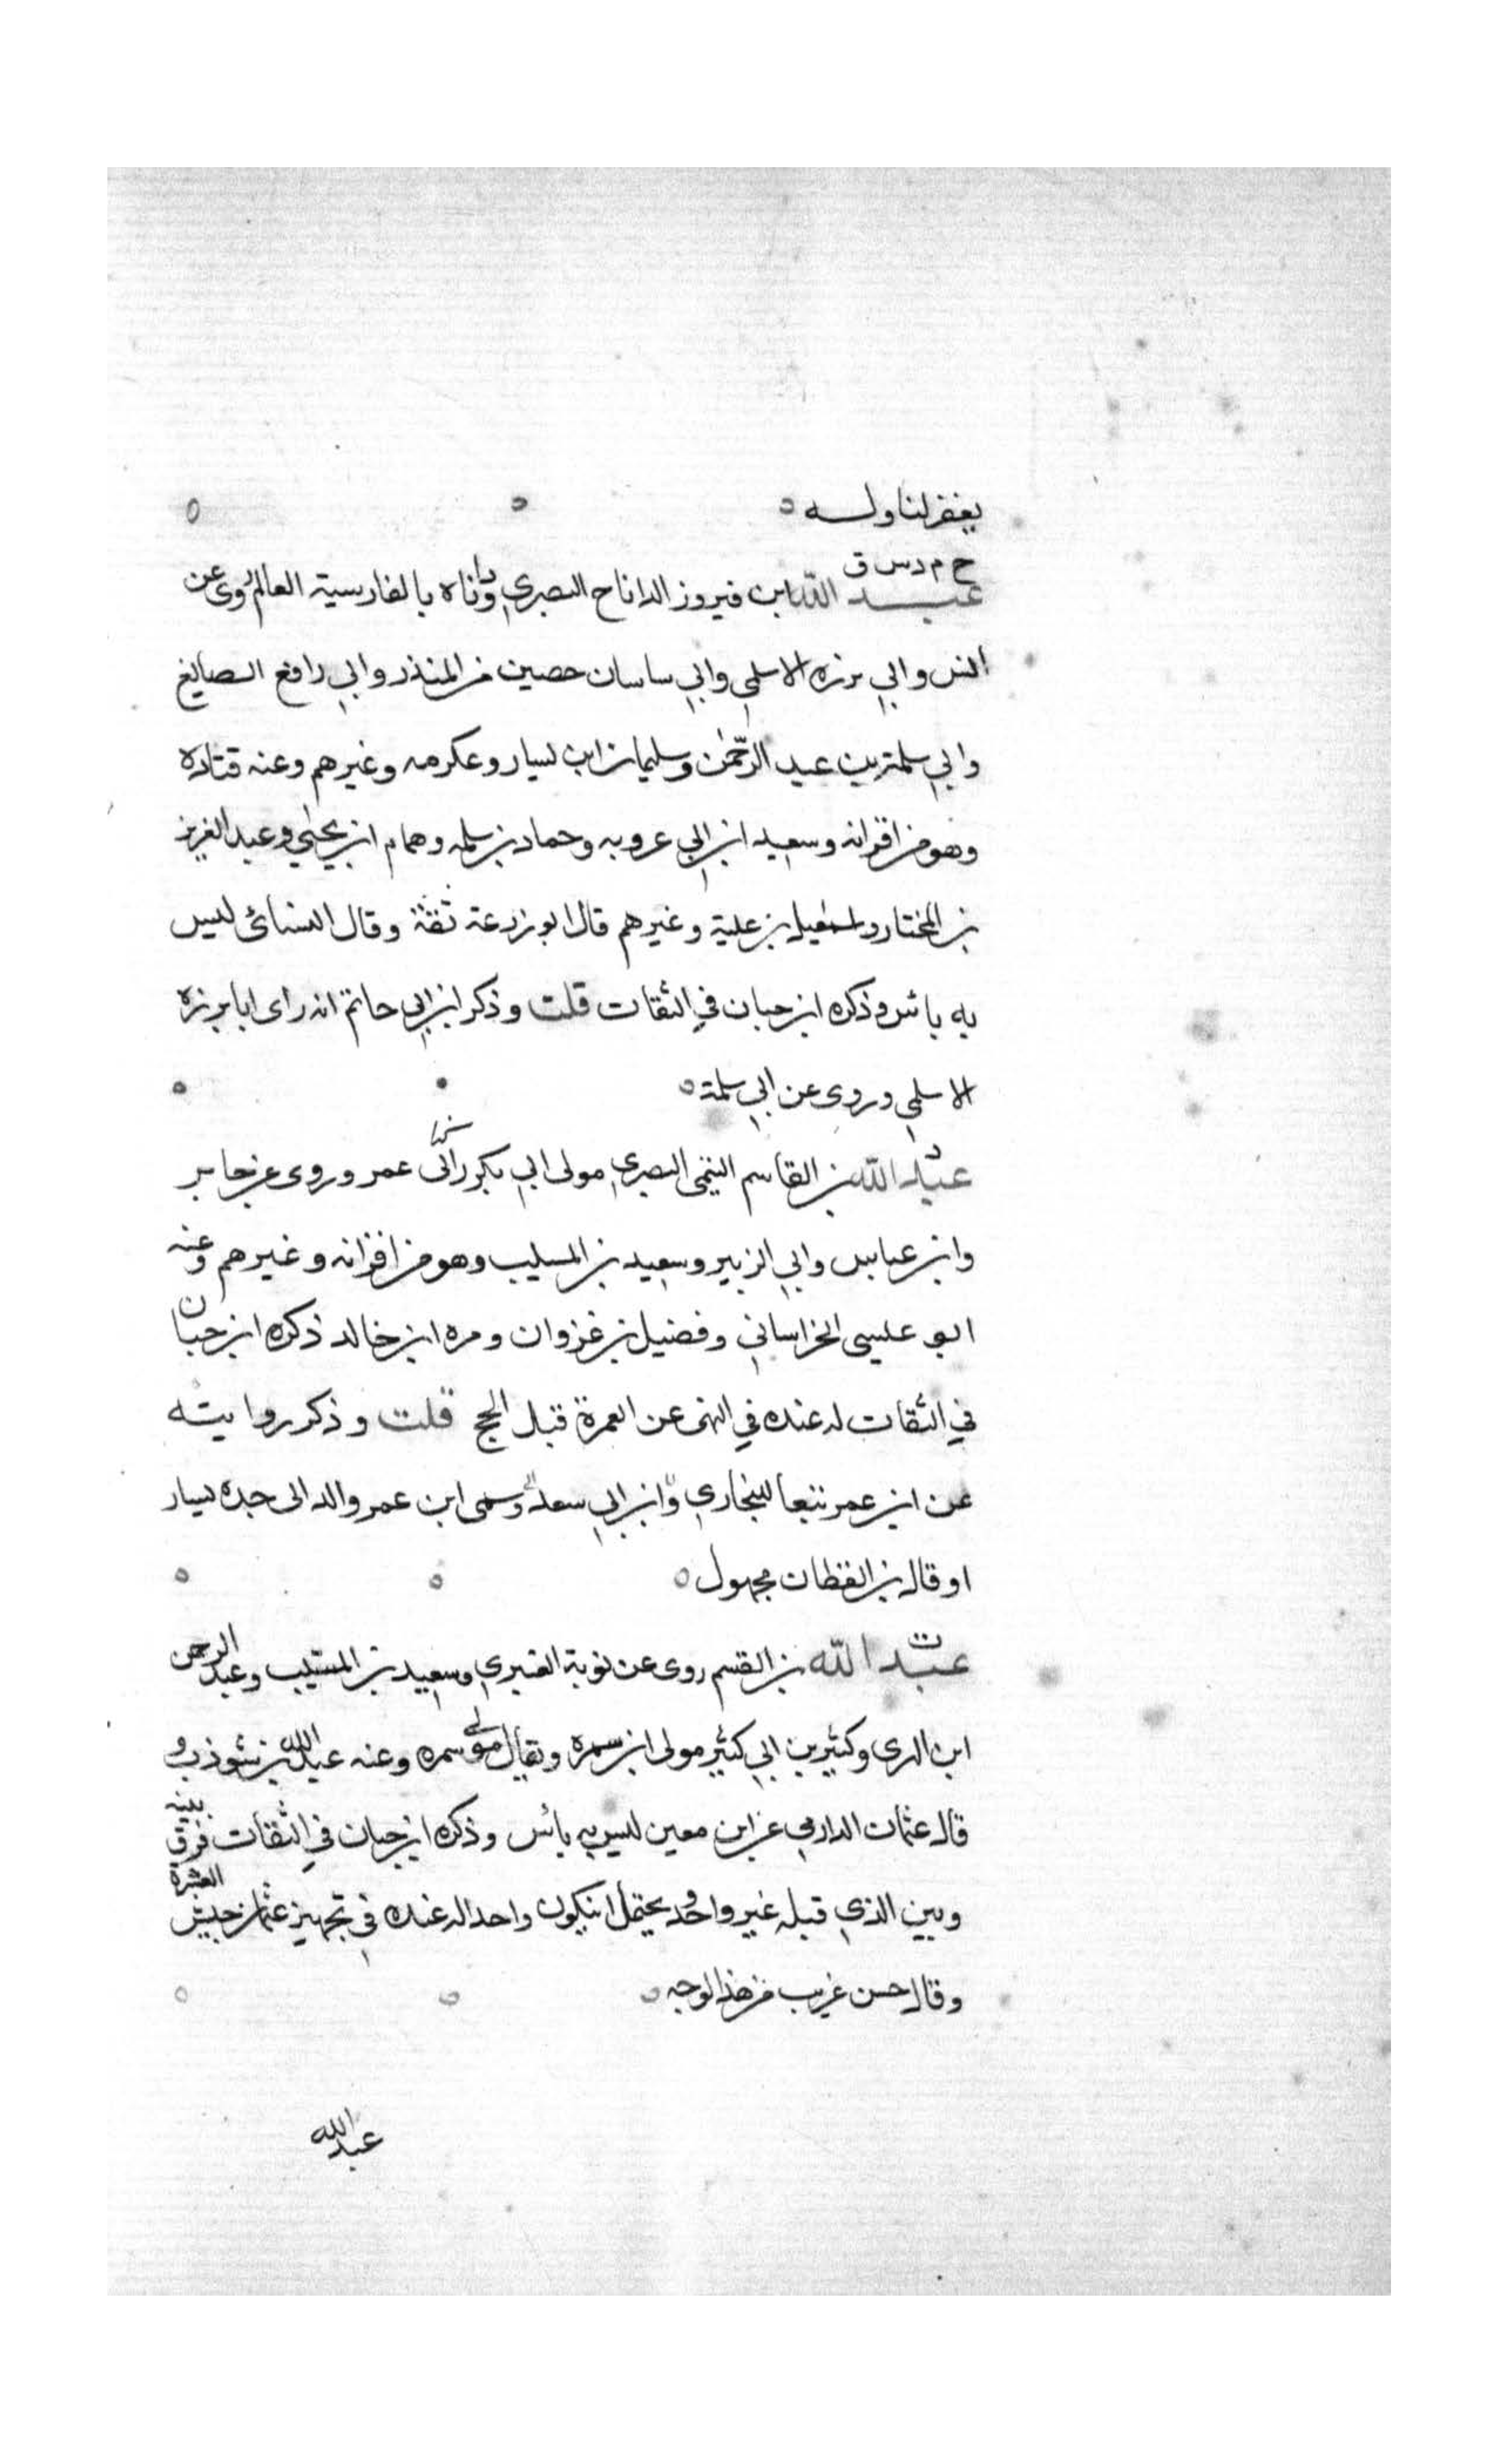 يغفر لنا وله
خ م د س ق
عبد الله ابن فيروز الداناج البصري وداناه بالفارسية العالم روى عن
انس وابي برزه الاسلمي وابي ساسان حصين بن المنذر وابي رافع الصايغ
وابي سلمة بن عبد الرحمن وسليمان ابن يسار وعكرمه وغيرهم وعنه قتاده
وهو من اقرانه وسعيد ابن ابي عروبه وحماد بن سلمه وهمام ابن يحيي وعبد العزيز
بن المختار واسمعيل بن علية وغيرهم قال ابو زرعة ثقة وقال النسائي ليس
به بائس وذكره ابن حبان في الثقات قلت وذكر ابن ابي حاتم انه راى ابا برزة
الاسلمي وروى عن ابي سلمة
د
عبد الله بن القاسم التيمي البصري مولى ابي بكر راى عمر وروى عن جابر
وابن عباس وابي الزبير وسعيد بن المسيب وهو من اقرانه وغيرهم وعنه
ابو عيسى الخراساني وفضيل بن غزوان ومره ابن خالد ذكره ابن حبان
في الثقات له عنده في النهى عن العمرة قبل الحج قلت وذكر روايته
عن ابن عمر تبعا للبخاري وابن ابي سعد وسمى ابن عمر والد الى جده يسار
او قال بن القطان مجهول
ت
عبد الله بن القسم روى عن نوبة العنبري وسعيد بن المسيب وعبد الرحمن
ابن الهرى وكثير بن ابي كثير مولى ابن سمره ويقال مولى سمره وعنه عبد الله بن شوذب و
قال عثمان الدارمي عن ابن معين ليس به بائس وذكره ابن حبان في الثقات فرق بينه
وبين الذي قبله غير واحد ويحتمل ان يكون واحدا له عنده في تجهيز عثمان جيش العشرة
وقال حسن غريب من هذا الوجه
عبد الله